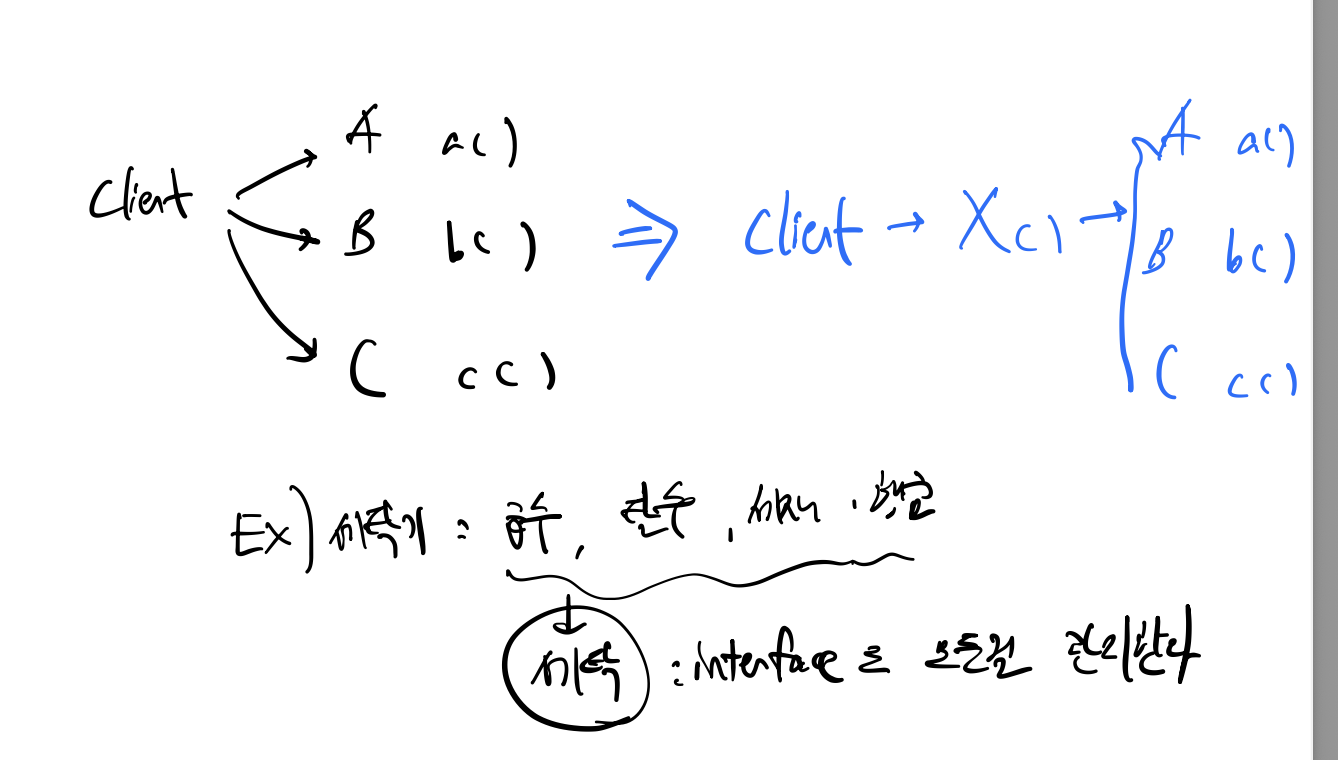 A a()
Client B b()
C c()
⇒ Client → X() → A a()
B b()
C c()
Ex) 세탁기 : 급수, 탈수, 세탁
세탁 : interface로 모든걸 관리한다